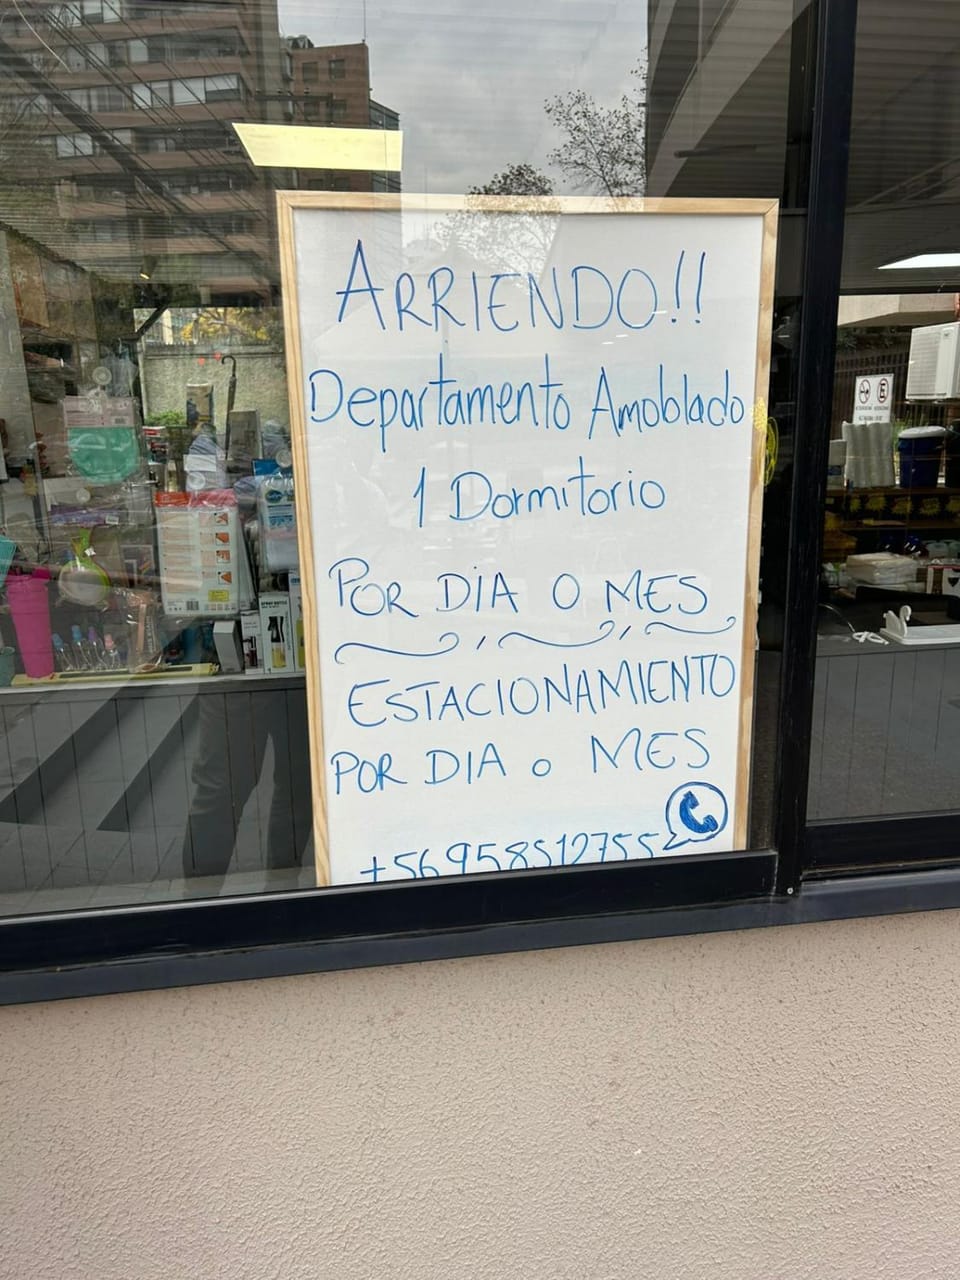 ARRIENDO!!
Departamento Amoblado
1 Dormitorio
POR DIA O MES
ESTACIONAMIENTO
POR DIA o MES
+56958512755